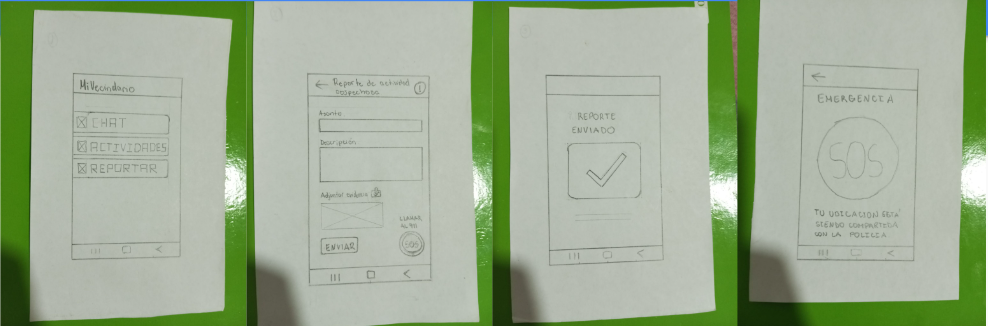 MiVecindario
CHAT
ACTIVIDADES
REPORTAR
Reporte de actividad
sospechosa
Asunto
Descripción
Adjuntar evidencia
LLAMAR
AL 911
ENVIAR
SOS
REPORTE
ENVIADO
EMERGENCIA
SOS
TU UBICACION ESTÁ
SIENDO COMPARTIDA
CON LA POLICIA